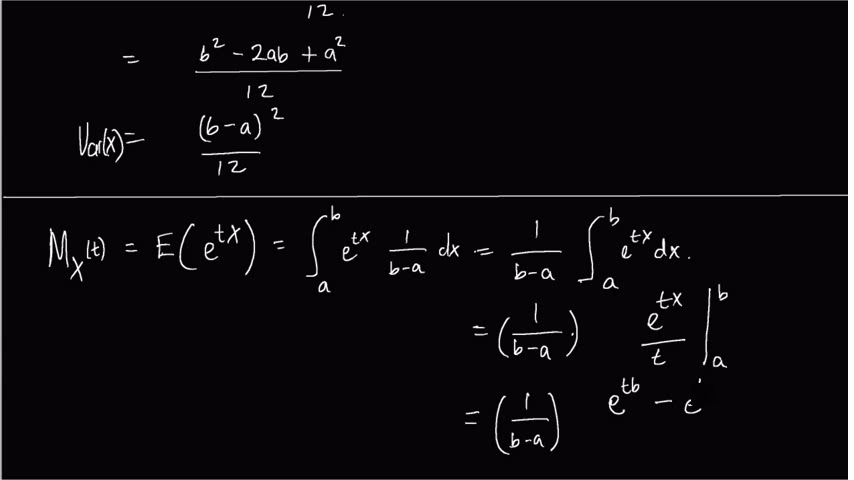 12.
= b² - 2ab + a² / 12
Var(X) = (b-a)² / 12
M_X(t) = E(e^{tX}) = ∫_a^b e^{tx} 1/(b-a) dx = 1/(b-a) ∫_a^b e^{tx} dx.
= (1/(b-a).) e^{tx}/t |_a^b
= (1/(b-a)) e^{tb} - e